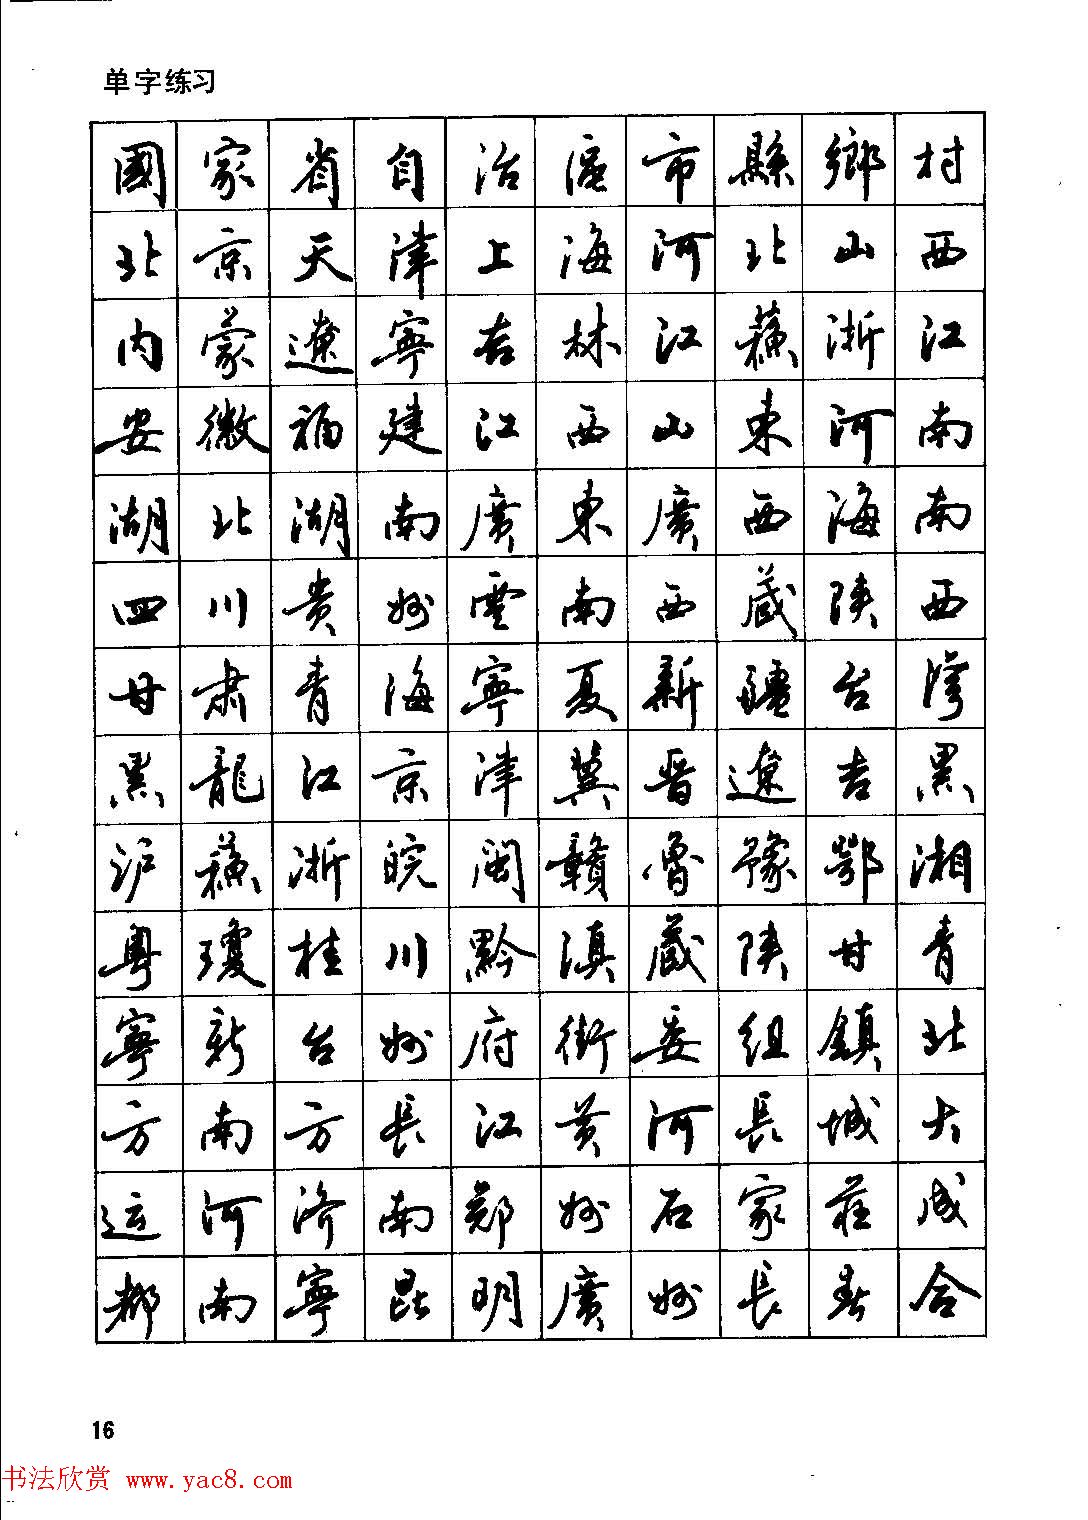 单字练习
國家省自治區市縣鄉村
北京天津上海河北山西
内蒙遼寧吉林江蘇浙江
安徽福建江西山東河南
湖北湖南廣東廣西海南
四川贵州雲南西藏陕西
甘肃青海寧夏新疆台灣
黑龍江京津冀晋遼吉黑
沪蘇浙皖闽贛魯豫鄂湘
粤瓊桂川黔滇藏陕甘青
寧新台州府街委組鎮北
方南方長江黄河長城大
运河济南郑州石家莊成
都南寧昆明廣州長春合
16
书法欣赏 www.yac8.com